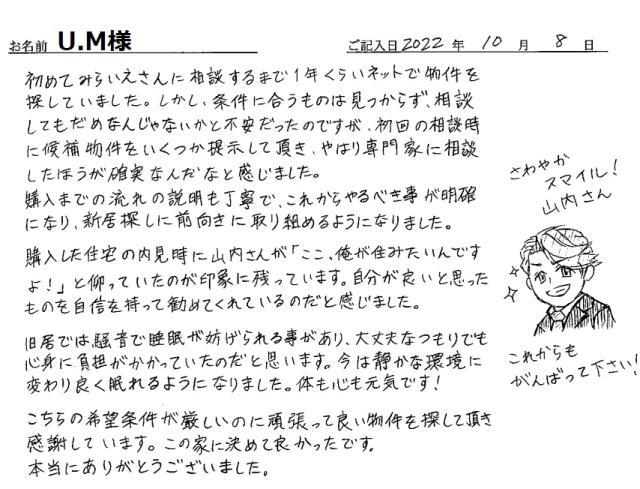 お名前 U.M様 ご記入日 2022 年 10 月 8 日
初めてみらいえさんに相談するまで1年くらいネットで物件を
探していました。しかし、条件に合うものは見つからず、相談
してもだめなんじゃないかと不安だったのですが、初回の相談時
に候補物件をいくつか提示して頂き、やはり専門家に相談
したほうが確実なんだなと感じました。
購入までの流れの説明も丁寧で、これからやるべき事が明確
になり、新居探しに前向きに取り組めるようになりました。
購入した住宅の内見時に山内さんが「ここ、俺が住みたいんです
よ!」と仰っていたのが印象に残っています。自分が良いと思った
ものを自信を持って勧めてくれているのだと感じました。
旧居では騒音で睡眠が妨げられる事があり、大丈夫なつもりでも
心身に負担がかかっていたのだと思います。今は静かな環境に
変わり良く眠れるようになりました。体も心も元気です!
こちらの希望条件が厳しいのに頑張って良い物件を探して頂き
感謝しています。この家に決めて良かったです。
本当にありがとうございました。
さわやか
スマイル!
山内さん
これからも
がんばって下さい!